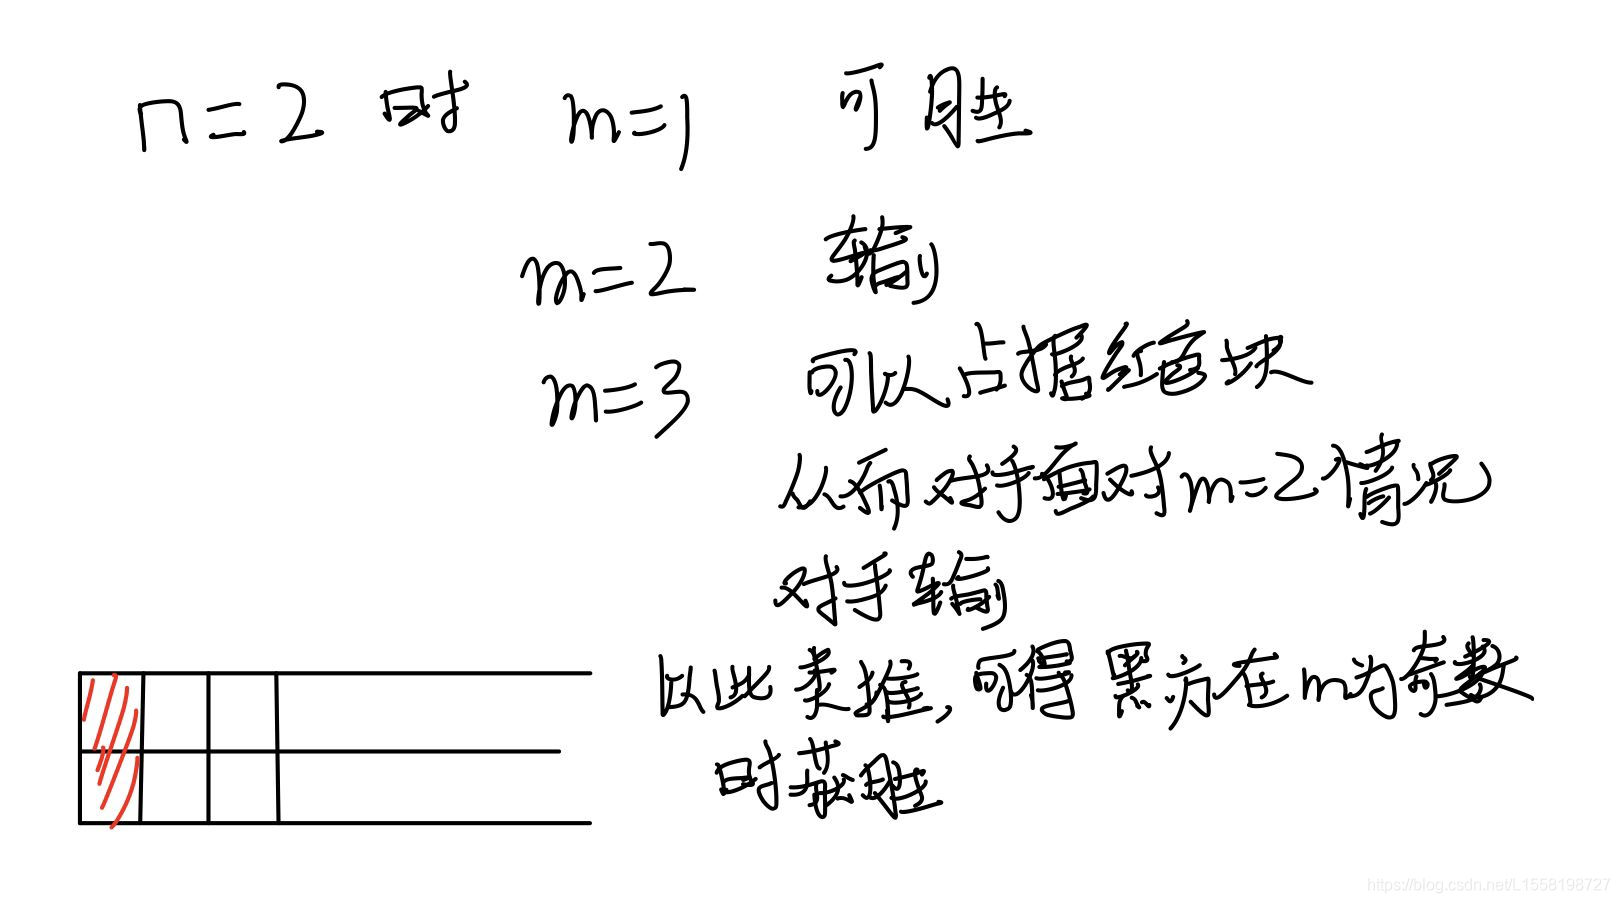 n=2 时 m=1 可胜
m=2 输
m=3 可以占据红色块
从而对手面对m=2情况
对手输
以此类推,可得黑方在m为奇数
时获胜
https://blog.csdn.net/L1558198727